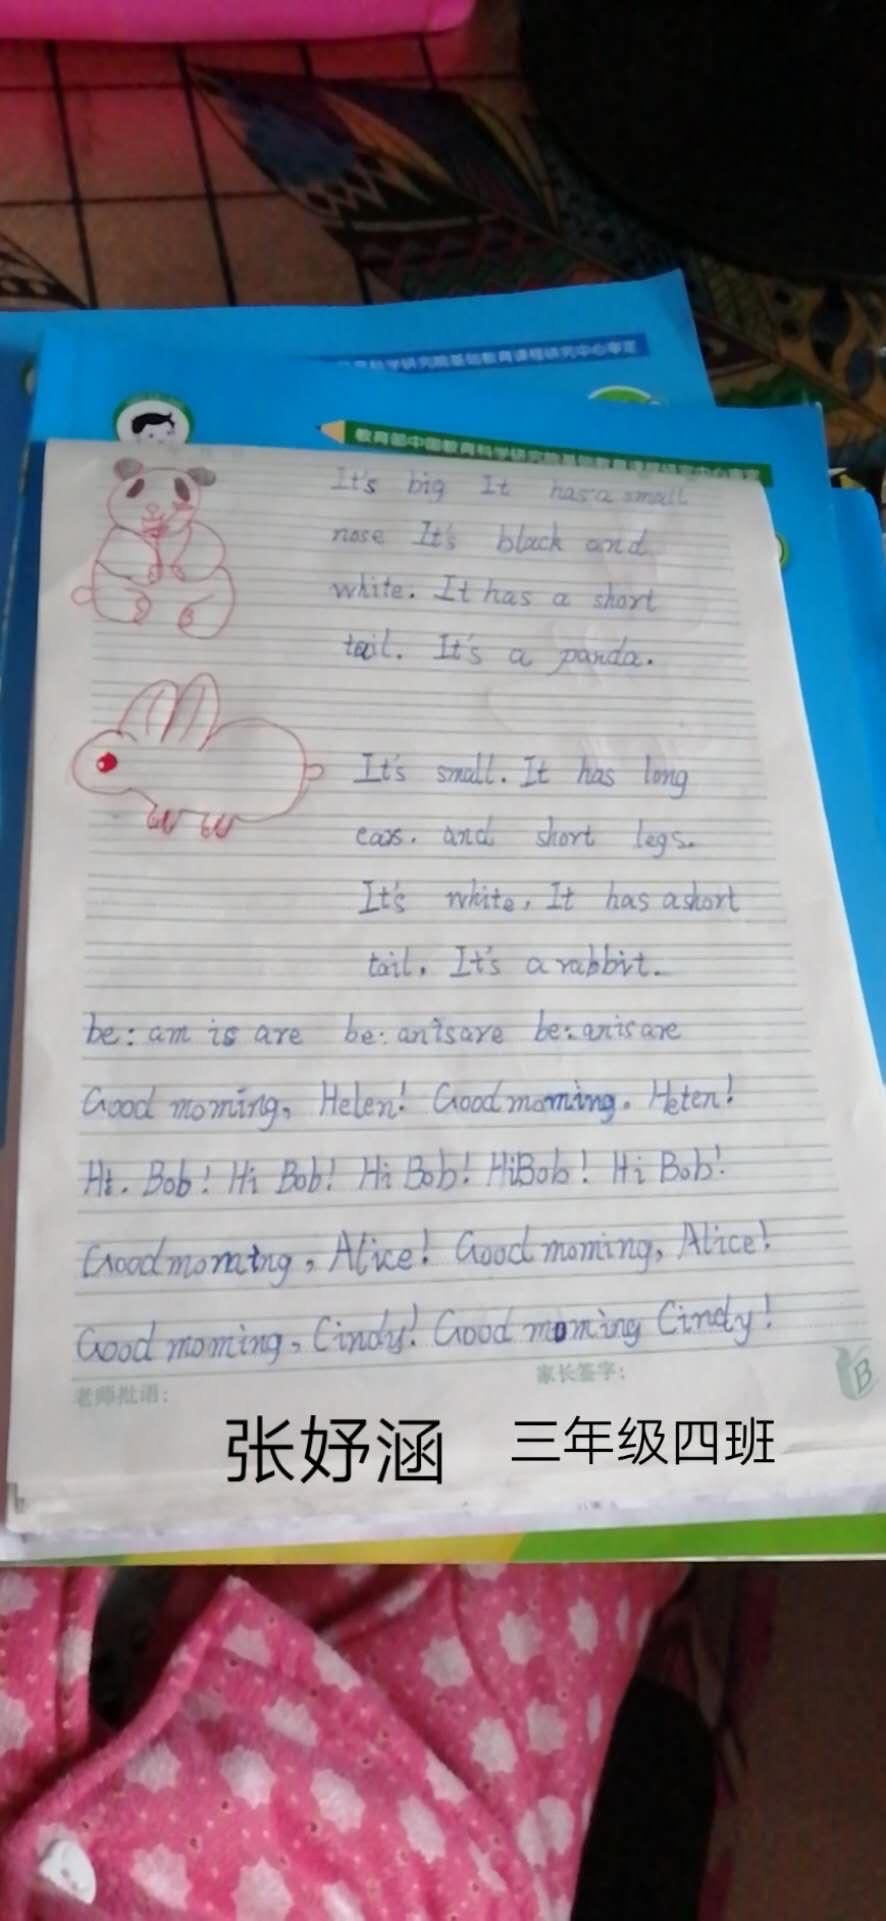 科学研究院基础教育课程研究中心审定
教育部中国教育科学研究院基础教育课程研究中心审定
It's big It has a small
nose It's black and
white. It has a short
tail. It's a panda.
It's small. It has long
ears. and short legs.
It's white, It has ashort
tail, It's a rabbit.
be: am is are be: anisare be: anisare
Good morning, Helen! Good morning. Heten!
Hi. Bob! Hi Bob! Hi Bob! HiBob! Hi Bob!
Good morning, Alice! Good morning, Alice!
Good morning, Cindy! Good morning Cindy!
家长签字:
老师批语:
B
张妤涵 三年级四班